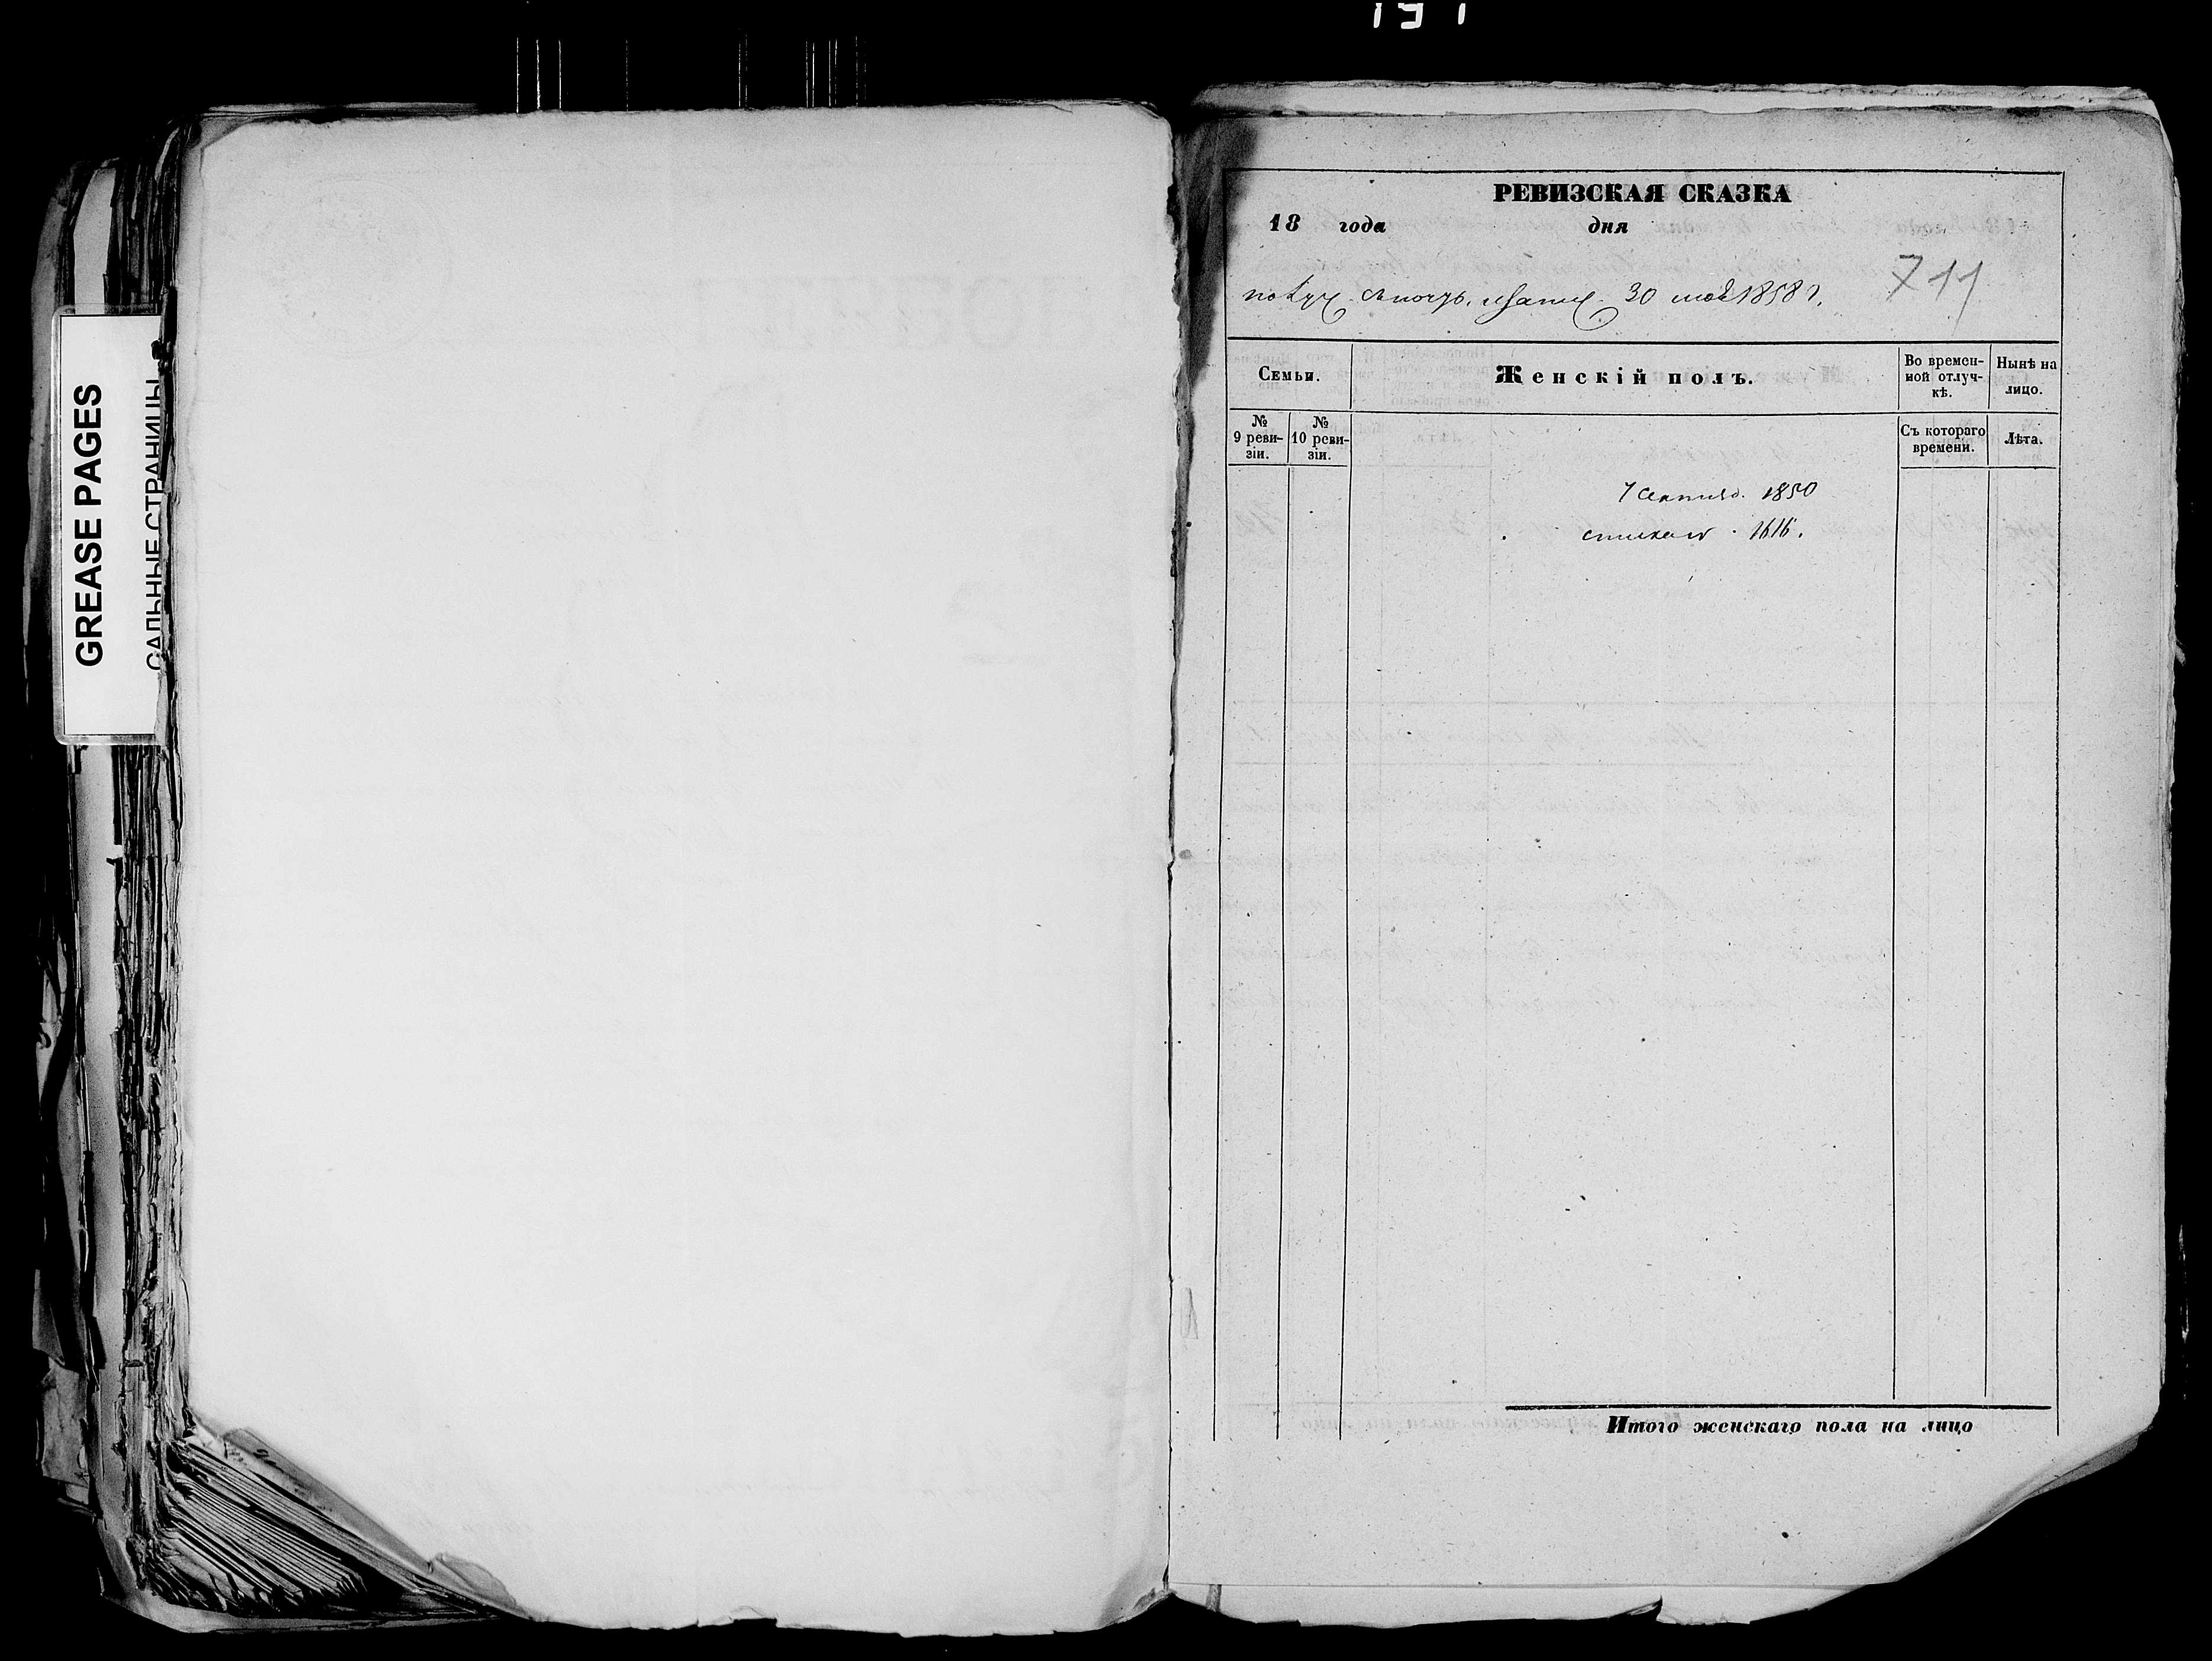 GREASE PAGES
САЛЬНЫЕ СТРАНИЦЫ
РЕВИЗСКАЯ СКАЗКА
18 года дня
30 1858 г.
711
Семьи.
Женскій полъ.
Во времен-
ной отлуч-
кѣ.
Нынѣ на
лицо.
№
9 реви-
зіи.
№
10 реви-
зіи.
Съ котораго
времени.
Лѣта.
1850
1616.
Итого женскаго пола на лицо